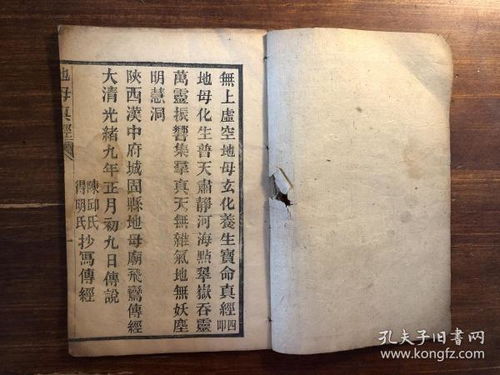 無上虛空地母玄化養生寶命真經四叩
地母化生普天肅靜河海點翠嶽吞靈
萬靈振響集羣真天無雜氣地無妖塵
明慧洞
陝西漢中府城固縣地母廟飛鸞傳經
大清光緒九年正月初九日傳說
陳邱氏
得明氏
抄寫傳經
地母真經
孔夫子旧书网
www.kongfz.com